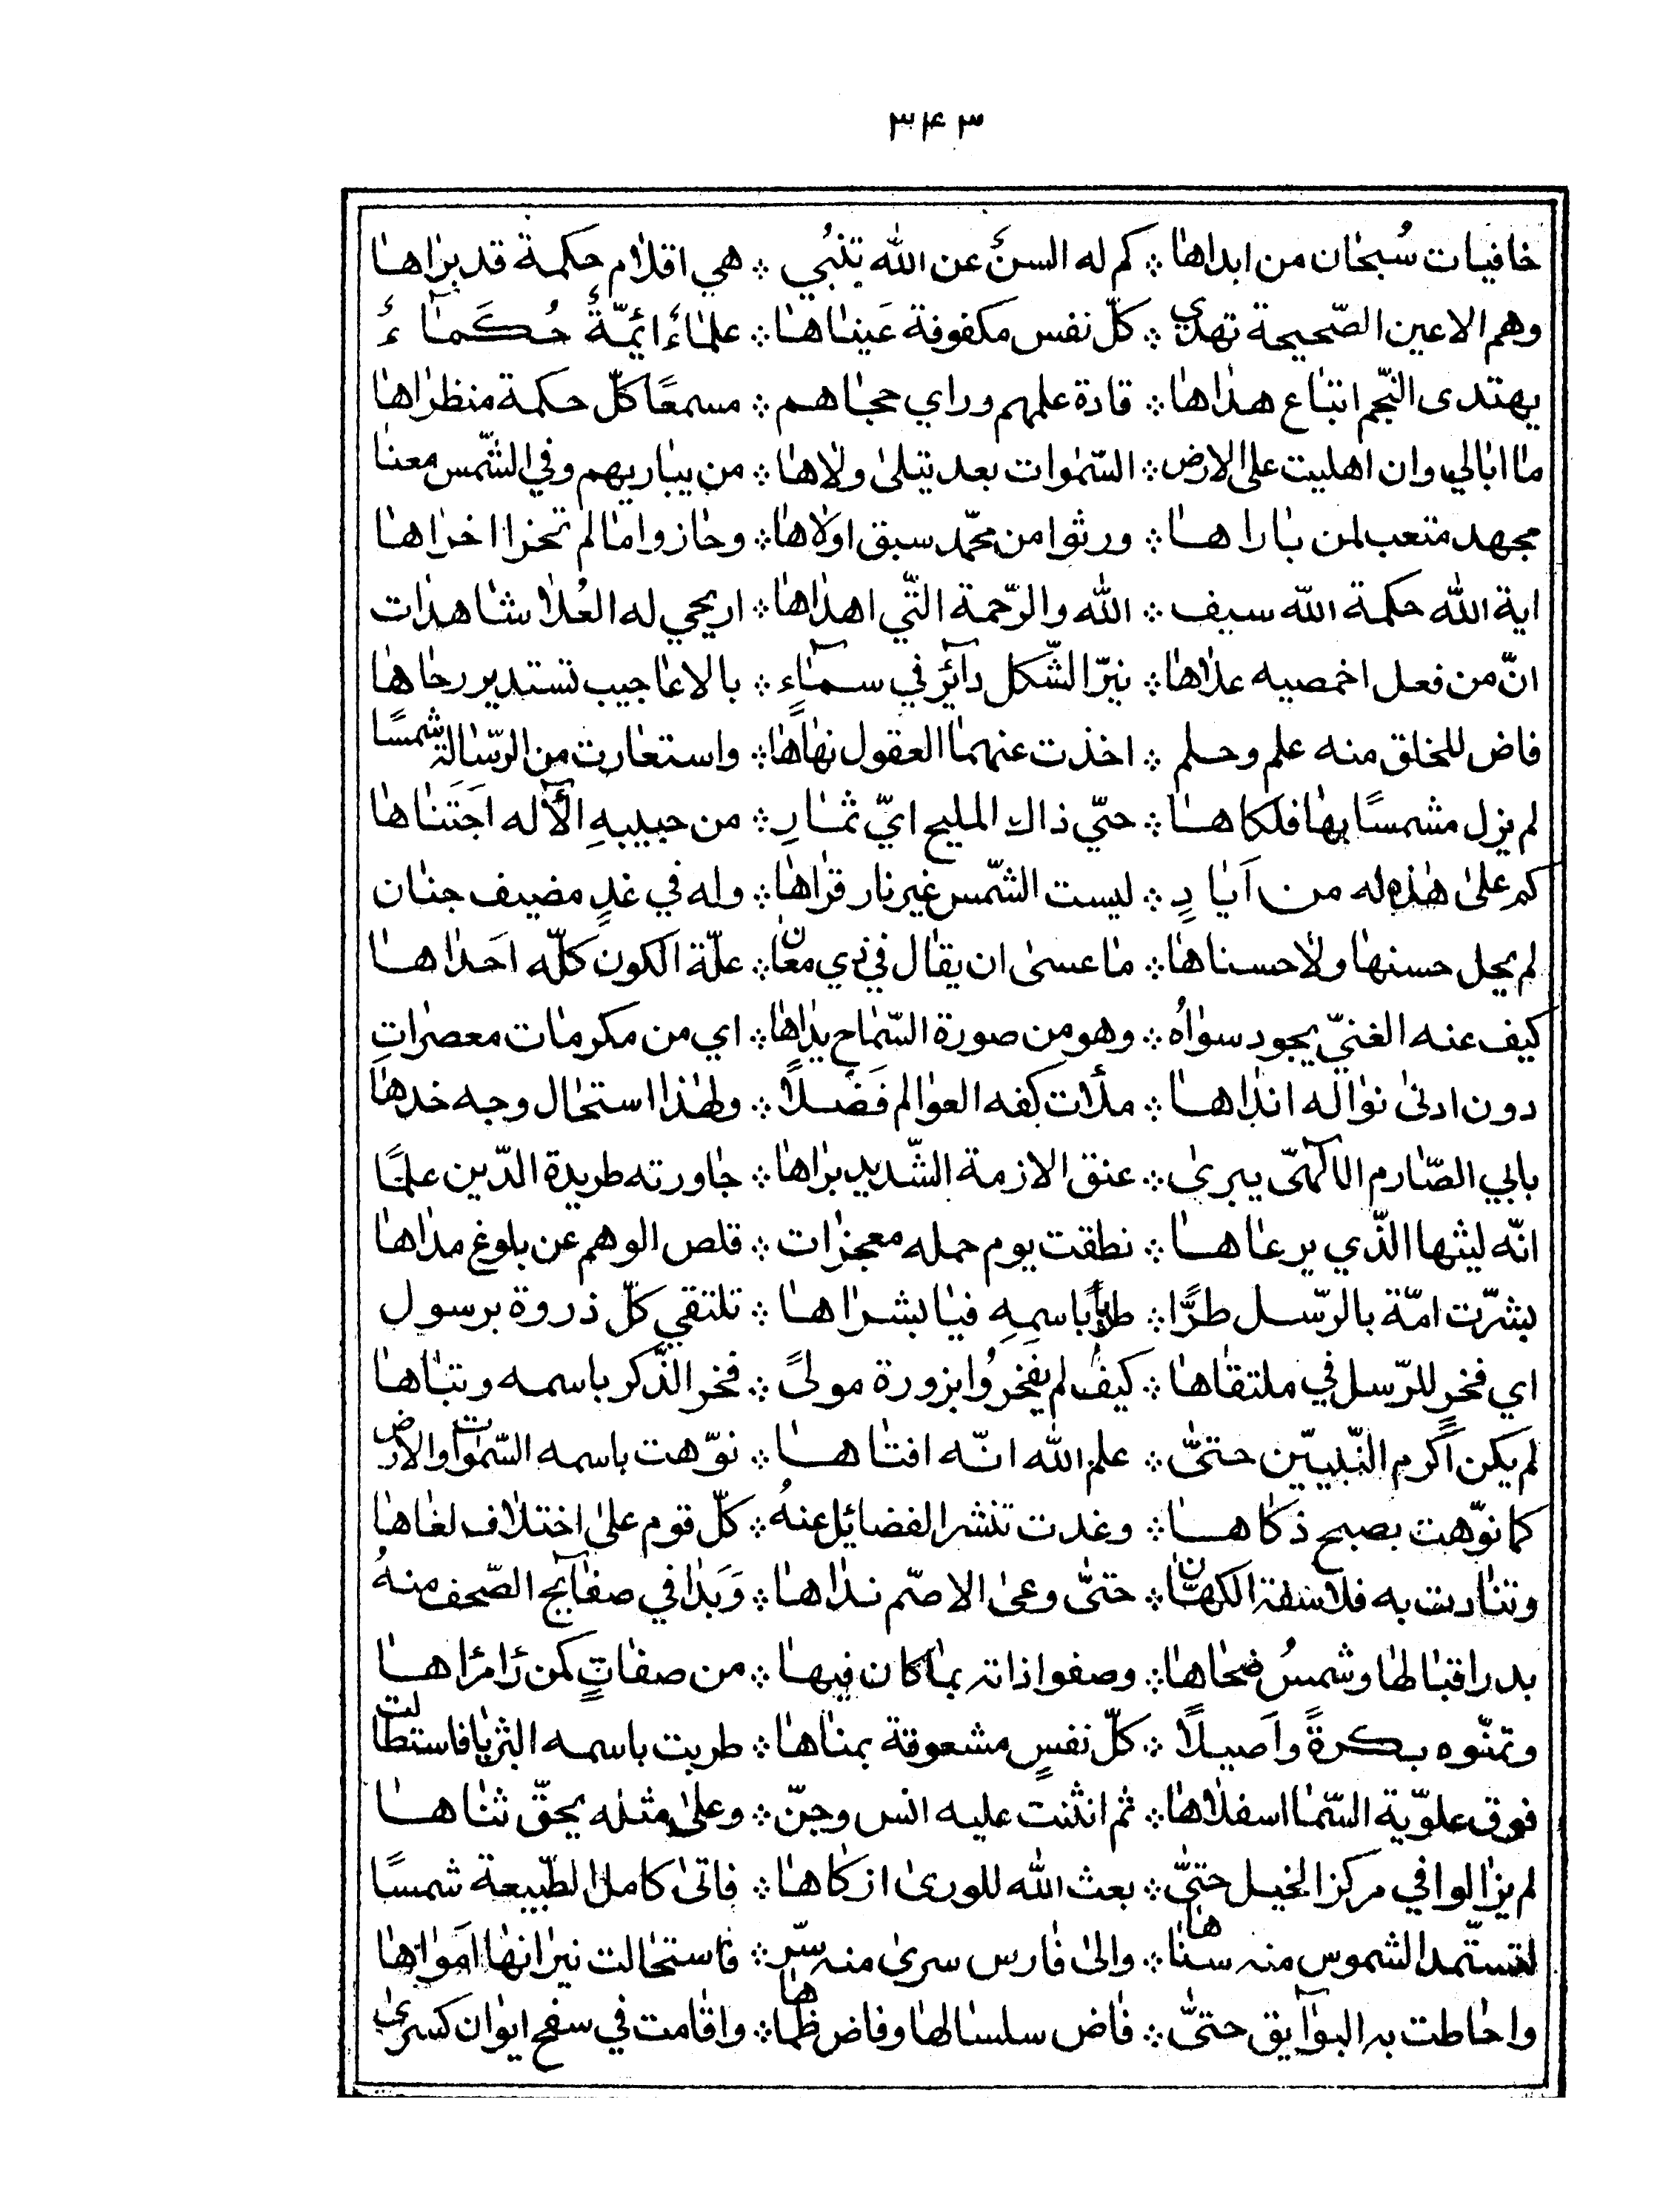 ۳۴۳
خافيات سُبحٰان من ابداهٰا ⁘ كم له السنٌ عن اللّٰه تنبُي ⁘ هي اقلٰام حكمة قد برٰاهـا
وهم الاعين الصّحيحة تهدي ⁘ كلّ نفس مكفوفة عَينٰاهـٰا ⁘ علمٰاءٌ ائمّةٌ حُكَمـآءٌ
يهتدى النّجم اتبٰاع هـدٰاهٰا ⁘ قادة علمهم وراي حجٰاهـم ⁘ مسمعًا كلّ حكمة منظرٰاهٰا
مٰا ابٰالي وان اهليت على الارض ⁘ السّمٰوات بعد نيلىٰ ولٰاهٰا ⁘ من يبٰاريهم وفي الشّمس معنٰا
مجهد متعب لمن بٰاراهـٰا ⁘ ورثوا من محمّد سبق اولٰاهٰا ⁘ وحٰازوا مٰا لم تحز اخرٰاهٰا
اية اللّٰه حكمة اللّٰه سيف ⁘ اللّٰه والرّحمة التّي اهدٰاهٰا ⁘ اريحي له العُلٰا شٰاهدٰات
انّ من فعل اخمصيه علٰاهٰا ⁘ نيّر الشّكل دآئرٌ في سمـٰآءٍ ⁘ بالاعٰاجيب تستدير رحٰاهٰا
فاض للخلق منه علم وحلم ⁘ اخذت عنهمٰا العقول نهٰاهٰا ⁘ واستعٰارت من الرّسٰالة شمسًا
لم يزل مشمسًا بهٰا فلكاهـٰا ⁘ حتّي ذاك المليح ايّ ثمٰـارٍ ⁘ من حبيبهِ الآله اجَتَنٰاهٰا
كم علىٰ هٰذه له من اَيٰادٍ ⁘ ليست الشّمس غير نار قرٰاهٰا ⁘ وله في غدٍ مضيف جنٰان
لم يحل حسنهٰا ولٰا حسنٰاهٰا ⁘ مٰا عسىٰ ان يقٰال في ذي معٰان ⁘ علّة الكون كلّه احَدٰاهـٰا
كيف عنه الغنيّ بجود سوٰاهُ ⁘ وهو من صورة السّمٰاح يدٰاهٰا ⁘ اي من مكرمٰات معصرٰاتٍ
دون ادنىٰ نوٰاله اندٰاهـٰا ⁘ ملأت كفه العوٰالم فَضـلًا ⁘ ولهٰذا استحٰال وجه خدهٰا
بابي الصّٰارم الالٰهيّ يبرىٰ ⁘ عنق الازمة الشّديد برٰاهٰا ⁘ جٰاورته طريدة الدّين علمًٰا
انّه ليثها الذّي يرعٰاهـٰا ⁘ نطقت يوم حمله معجزٰات ⁘ قلص الوهم عن بلوغ مدٰاهٰا
بشّرت امّة بالرّسـل طرًّا ⁘ طربًا باسمهِ فيٰا بشرٰاهـٰا ⁘ تلتقي كلّ ذروة برسول
اي فخرٍ للرّسل في ملتقٰاهٰا ⁘ كيفَ لم يَفخرُوا بزورة مولىً ⁘ فخر الذّكر باسمـه وتبٰاهٰا
لم يكن اَكرم النّبيّين حتىّٰ ⁘ علم اللّٰه انّه افتٰاهـٰا ⁘ نوّهت باسمه السّمٰوات والارض
كما نوّهت بصبح ذكٰاهـٰا ⁘ وغدت تنشر الفضائل عنهُ ⁘ كلّ قوم علىٰ اختلٰاف لغٰاهٰا
وتنٰادت به فلاسفة الكهّٰان ⁘ حتىّٰ وعىٰ الاصّم ندٰاهٰا ⁘ وَبَدٰا في صفٰايح الصّحف منهُ
بدر اقبٰالهٰا وشمسُ ضحٰاهٰا ⁘ وصفوا ذاته بمٰا كان فيهٰا ⁘ من صفٰاتٍ كمن رٰأ مرٰاهـٰا
وتمنّوه بكـرةً واَصيـلًا ⁘ كلّ نفسٍ مشعوفة بمنٰاهٰا ⁘ طربت باسمـه الثريٰا فاستطالت
فوق علوّية السّمٰا اسفلٰاهٰا ⁘ ثم انثنت عليه انس وجنّ ⁘ وعلىٰ مثله يحقّ ثنٰاهـٰا
لم يزٰالوا في مركز الجهل حتىّٰ ⁘ بعث اللّٰه للورىٰ ازكٰاهـٰا ⁘ فاتىٰ كامل الطّبيعة شمسًا
تستمّد الشموس منه سنٰاهٰا ⁘ والىٰ فٰارس سرىٰ منه سرّ ⁘ فٰاستحٰالت نيرٰانهٰا امَوٰاهٰا
واحٰاطت به البوٰآيق حتىّٰ ⁘ فٰاض سلسٰالهٰا وفاض ظمٰاهٰا ⁘ واقٰامت في سفح ايوٰان كسرىٰ